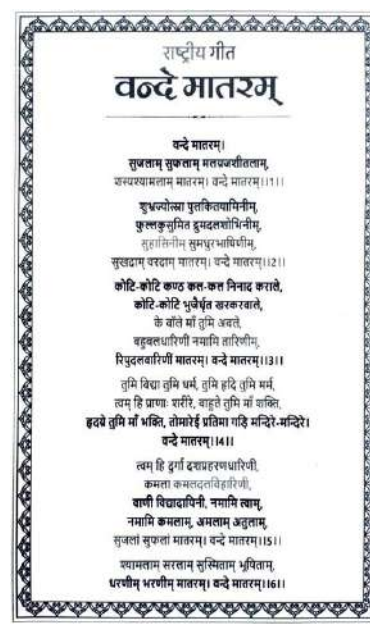 राष्ट्रीय गीत
वन्दे मातरम्
वन्दे मातरम्।
सुजलाम् सुफलाम् मलयजशीतलाम्,
शस्यश्यामलाम् मातरम्। वन्दे मातरम्।।1।।
शुभ्रज्योत्स्ना पुलकितयामिनीम्,
फुल्लकुसुमित द्रुमदलशोभिनीम्,
सुहासिनीम् सुमधुरभाषिणीम्,
सुखदाम् वरदाम् मातरम्। वन्दे मातरम्।।2।।
कोटि-कोटि कण्ठ कल-कल निनाद कराले,
कोटि-कोटि भुजैर्धृत खरकरवाले,
के बॉले माँ तुमि अबले,
बहुबलधारिणीं नमामि तारिणीम्,
रिपुदलवारिणीं मातरम्। वन्दे मातरम्।।3।।
तुमि विद्या तुमि धर्म, तुमि हृदि तुमि मर्म,
त्वम् हि प्राणाः शरीरे, बाहुते तुमि माँ शक्ति,
हृदये तुमि माँ भक्ति, तोमारेई प्रतिमा गड़ि मन्दिरे-मन्दिरे।
वन्दे मातरम्।।4।।
त्वम् हि दुर्गा दशप्रहरणधारिणी,
कमला कमलदलविहारिणी,
वाणी विद्यादायिनी, नमामि त्वाम्,
नमामि कमलाम्, अमलाम् अतुलाम्,
सुजलां सुफलां मातरम्। वन्दे मातरम्।।5।।
श्यामलाम् सरलाम् सुस्मिताम् भूषिताम्,
धरणीम् भरणीम् मातरम्। वन्दे मातरम्।।6।।